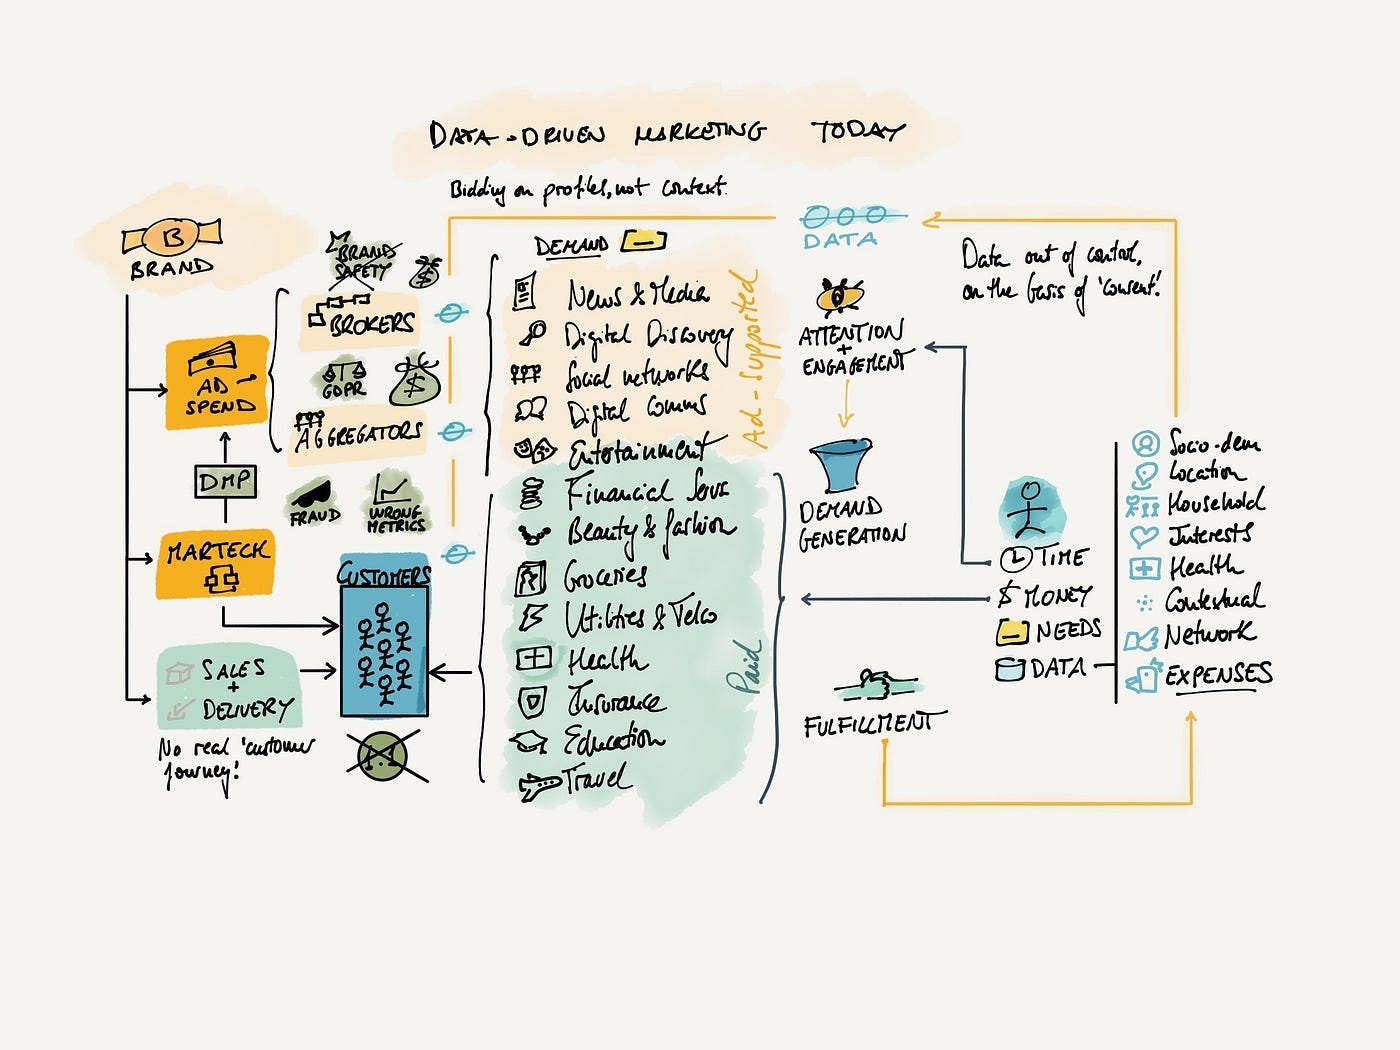 DATA-DRIVEN MARKETING TODAY
Bidding on profiles, not context.
B
BRAND
AD
SPEND
DMP
MARTECH
SALES
+
DELIVERY
No real 'customer
journey!
BRAND
SAFETY
$
BROKERS
GDPR
$
AGGREGATORS
FRAUD
WRONG
METRICS
CUSTOMERS
1:1
DEMAND
News & Media
Digital Discovery
Social networks
Digital Comms
Entertainment
Ad-Supported
Financial Serv
Beauty & fashion
Groceries
Utilities & Telco
Health
Insurance
Education
Travel
Paid
DATA
Data out of control,
on the basis of 'consent'!
ATTENTION
+
ENGAGEMENT
DEMAND
GENERATION
FULFILLMENT
TIME
$ MONEY
NEEDS
DATA
Socio-dem
Location
Household
Interests
Health
Contextual
Network
EXPENSES